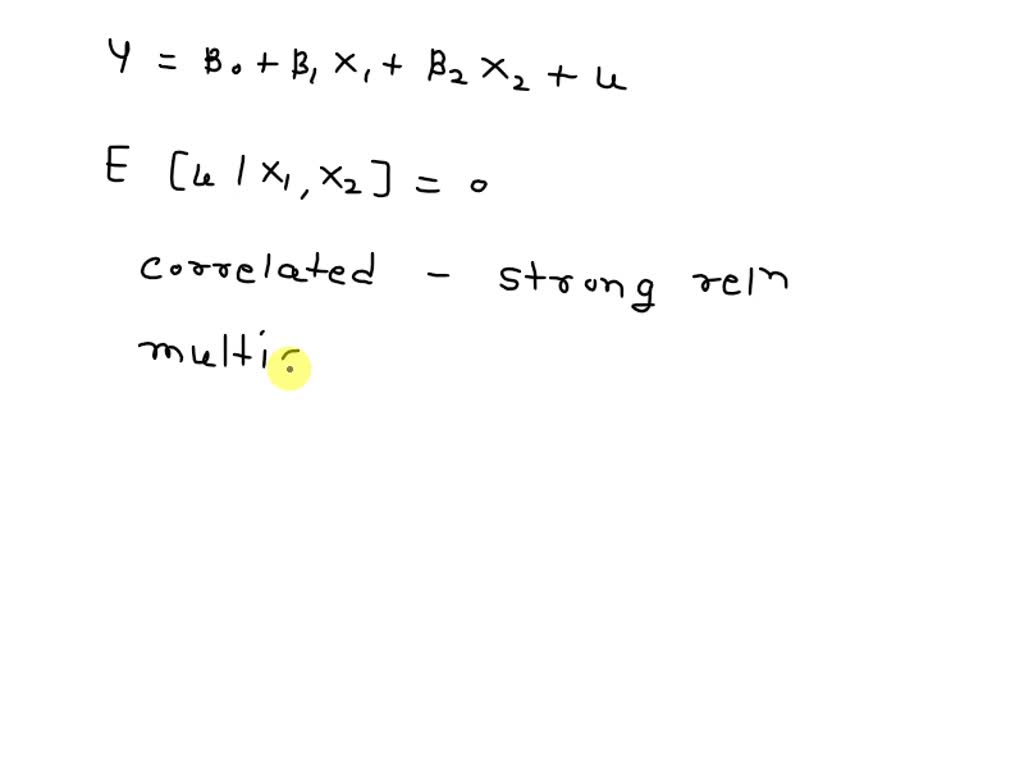 Y = β₀ + β₁ X₁ + β₂ X₂ + u
E [u | X₁, X₂] = 0
correlated - strong reln
multic